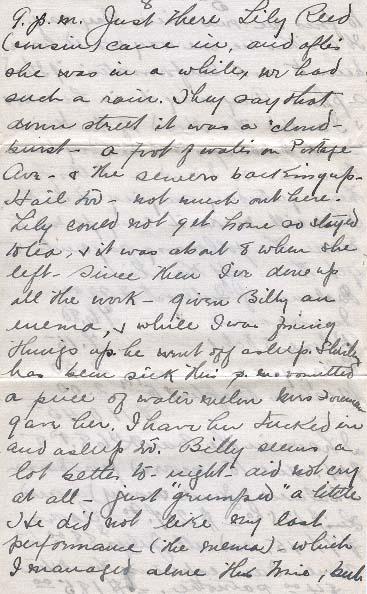 9. p. m. Just there Lily Reed
(cousin) came in, and after
she was in a while, we had
such a rain. They say that
down street it was a "cloud-
burst - a foot of water on Portage
Ave - & the sewers backing up -
Hail too - not much out here.
Lily could not get home so stayed
to tea, & it was about 8 when she
left - Since then I've done up
all the work - given Billy an
enema, & while I was fixing
things up he went off asleep.
has been sick this p. m. vomitted
a piece of water melon Mrs
gave her. I have her tucked in
and asleep too. Billy seems a
lot better to-night - did not cry
at all - just "grumped" a little
He did not like my last
performance (the enema) - which
I managed alone this time, but